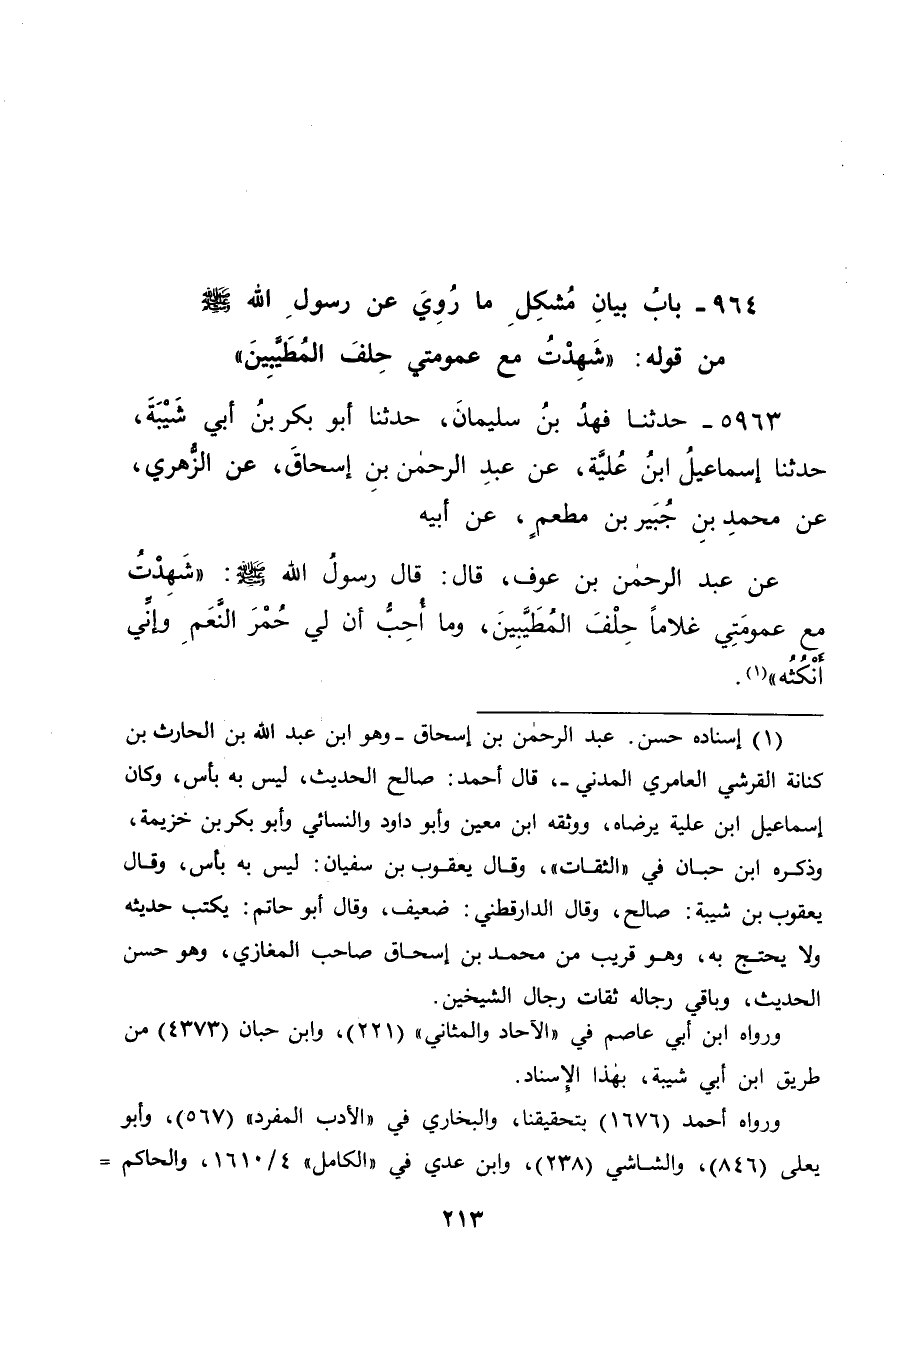 ٩٦٤ ـ بابُ بيانِ مُشكِلِ ما رُوِيَ عن رسولِ الله ﷺ
من قوله: «شَهِدْتُ مع عمومتي حِلفَ المُطَيَّبِينَ»
٥٩٦٣ ـ حدثنا فهدُ بنُ سليمانَ، حدثنا أبو بكر بنُ أبي شَيْبَةَ،
حدثنا إسماعيلُ ابنُ عُليَّة، عن عبدِ الرحمٰن بنِ إسحاقَ، عن الزُّهري،
عن محمدِ بنِ جُبَير بن مطعمٍ، عن أبيه
عن عبد الرحمٰن بن عوف، قال: قال رسولُ الله ﷺ: «شَهِدْتُ
مع عمومَتِي غلاماً حِلْفَ المُطَيَّبِينَ، وما أُحِبُّ أن لي حُمْرَ النَّعَمِ وإنِّي
أَنْكُثُه»(١).
(١) إسناده حسن. عبد الرحمٰن بن إسحاق ـ وهو ابن عبد الله بن الحارث بن
كنانة القرشي العامري المدني ـ، قال أحمد: صالح الحديث، ليس به بأس، وكان
إسماعيل ابن علية يرضاه، ووثقه ابن معين وأبو داود والنسائي وأبو بكر بن خزيمة،
وذكره ابن حبان في «الثقات»، وقال يعقوب بن سفيان: ليس به بأس، وقال
يعقوب بن شيبة: صالح، وقال الدارقطني: ضعيف، وقال أبو حاتم: يكتب حديثه
ولا يحتج به، وهو قريب من محمد بن إسحاق صاحب المغازي، وهو حسن
الحديث، وباقي رجاله ثقات رجال الشيخين.
ورواه ابن أبي عاصم في «الآحاد والمثاني» (٢٢١)، وابن حبان (٤٣٧٣) من
طريق ابن أبي شيبة، بهٰذا الإسناد.
ورواه أحمد (١٦٧٦) بتحقيقنا، والبخاري في «الأدب المفرد» (٥٦٧)، وأبو
يعلى (٨٤٦)، والشاشي (٢٣٨)، وابن عدي في «الكامل» ١٦١٠/٤، والحاكم =
٢١٣